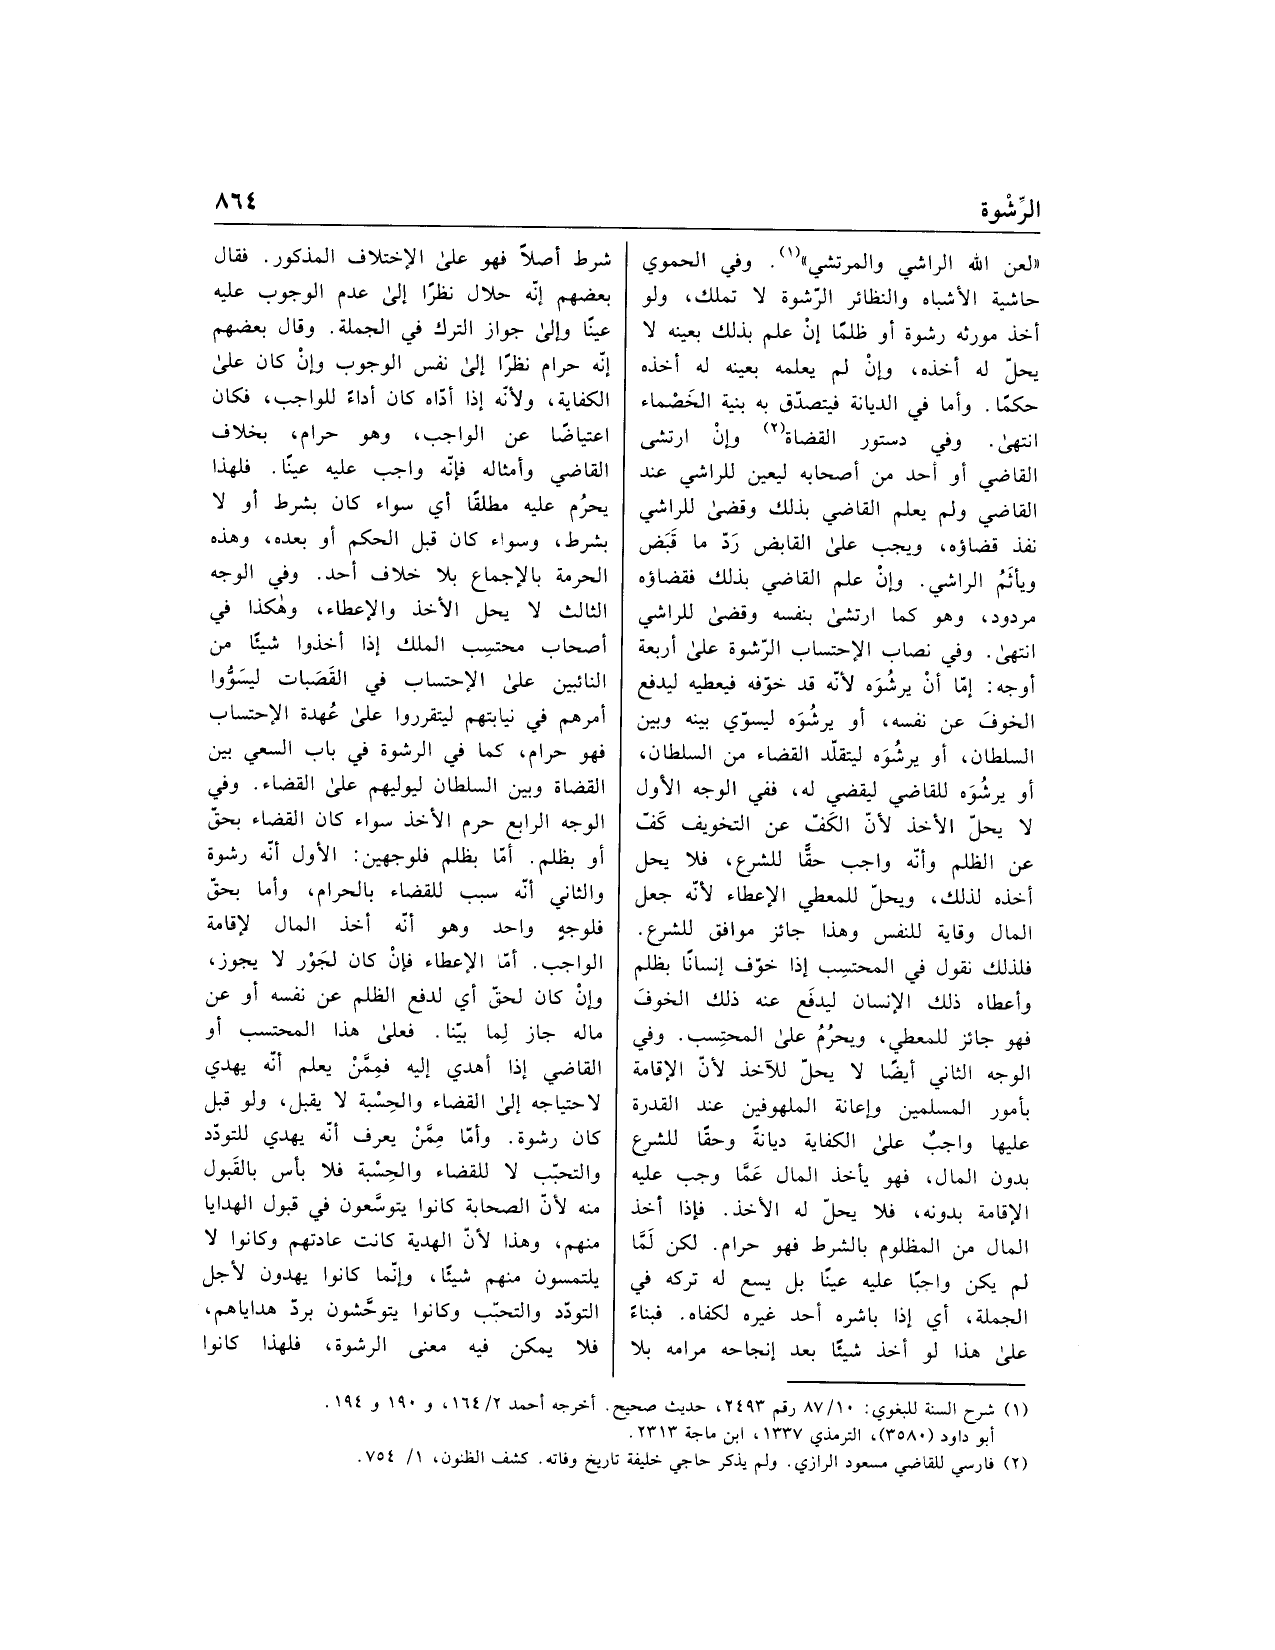 الرِّشْوة
٨٦٤
«لعن الله الراشي والمرتشي»(١). وفي الحموي
حاشية الأشباه والنظائر الرّشوة لا تملك، ولو
أخذ مورثه رشوة أو ظلمًا إنْ علم بذلك بعينه لا
يحلّ له أخذه، وإنْ لم يعلمه بعينه له أخذه
حكمًا. وأما في الديانة فيتصدّق به بنية الخَصْماء
انتهىٰ. وفي دستور القضاة(٢) وإنْ ارتشى
القاضي أو أحد من أصحابه ليعين للراشي عند
القاضي ولم يعلم القاضي بذلك وقضىٰ للراشي
نفذ قضاؤه، ويجب علىٰ القابض رَدّ ما قَبَض
ويأثَمُ الراشي. وإنْ علم القاضي بذلك فقضاؤه
مردود، وهو كما ارتشىٰ بنفسه وقضىٰ للراشي
انتهىٰ. وفي نصاب الإحتساب الرّشوة علىٰ أربعة
أوجه: إمّا أنْ يرشُوَه لأنّه قد خوّفه فيعطيه ليدفع
الخوفَ عن نفسه، أو يرشُوَه ليسوّي بينه وبين
السلطان، أو يرشُوَه ليتقلّد القضاء من السلطان،
أو يرشُوَه للقاضي ليقضي له، ففي الوجه الأول
لا يحلّ الأخذ لأنّ الكَفّ عن التخويف كَفّ
عن الظلم وأنّه واجب حقًّا للشرع، فلا يحل
أخذه لذلك، ويحلّ للمعطي الإعطاء لأنّه جعل
المال وقاية للنفس وهذا جائز موافق للشرع.
فلذلك نقول في المحتسِب إذا خوّف إنسانًا بظلم
وأعطاه ذلك الإنسان ليدفَع عنه ذلك الخوفَ
فهو جائز للمعطي، ويحرُمُ علىٰ المحتِسب. وفي
الوجه الثاني أيضًا لا يحلّ للآخذ لأنّ الإقامة
بأمور المسلمين وإعانة الملهوفين عند القدرة
عليها واجبٌ علىٰ الكفاية ديانةً وحقًا للشرع
بدون المال، فهو يأخذ المال عَمَّا وجب عليه
الإقامة بدونه، فلا يحلّ له الأخذ. فإذا أخذ
المال من المظلوم بالشرط فهو حرام. لكن لَمَّا
لم يكن واجبًا عليه عينًا بل يسع له تركه في
الجملة، أي إذا باشره أحد غيره لكفاه. فبناءً
علىٰ هذا لو أخذ شيئًا بعد إنجاحه مرامه بلا
شرط أصلاً فهو علىٰ الإختلاف المذكور. فقال
بعضهم إنّه حلال نظرًا إلىٰ عدم الوجوب عليه
عينًا وإلىٰ جواز الترك في الجملة. وقال بعضهم
إنّه حرام نظرًا إلىٰ نفس الوجوب وإنْ كان علىٰ
الكفاية، ولأنّه إذا أدّاه كان أداءً للواجب، فكان
اعتياضًا عن الواجب، وهو حرام، بخلاف
القاضي وأمثاله فإنّه واجب عليه عينًا. فلهذا
يحرُم عليه مطلقًا أي سواء كان بشرط أو لا
بشرط، وسواء كان قبل الحكم أو بعده، وهذه
الحرمة بالإجماع بلا خلاف أحد. وفي الوجه
الثالث لا يحل الأخذ والإعطاء، وهٰكذا في
أصحاب محتسِب الملك إذا أخذوا شيئًا من
النائبين علىٰ الإحتساب في القَصَبات ليسَوُّوا
أمرهم في نيابتهم ليتقرروا علىٰ عُهدة الإحتساب
فهو حرام، كما في الرشوة في باب السعي بين
القضاة وبين السلطان ليوليهم علىٰ القضاء. وفي
الوجه الرابع حرم الأخذ سواء كان القضاء بحقّ
أو بظلم. أمّا بظلم فلوجهين: الأول أنّه رشوة
والثاني أنّه سبب للقضاء بالحرام، وأما بحقّ
فلوجهٍ واحد وهو أنّه أخذ المال لإقامة
الواجب. أمّا الإعطاء فإنْ كان لجَوْر لا يجوز،
وإنْ كان لحقّ أي لدفع الظلم عن نفسه أو عن
ماله جاز لِما بيّنا. فعلىٰ هذا المحتسب أو
القاضي إذا أهدي إليه فمِمَّنْ يعلم أنّه يهدي
لاحتياجه إلىٰ القضاء والحِسْبة لا يقبل، ولو قبل
كان رشوة. وأمّا مِمَّنْ يعرف أنّه يهدي للتودّد
والتحبّب لا للقضاء والحِسْبة فلا بأس بالقَبول
منه لأنّ الصحابة كانوا يتوسَّعون في قبول الهدايا
منهم، وهذا لأنّ الهدية كانت عادتهم وكانوا لا
يلتمسون منهم شيئًا، وإنّما كانوا يهدون لأجل
التودّد والتحبّب وكانوا يتوحَّشون بردّ هداياهم،
فلا يمكن فيه معنى الرشوة، فلهذا كانوا
(١) شرح السنة للبغوي: ٨٧/١٠ رقم ٢٤٩٣، حديث صحيح. أخرجه أحمد ١٦٤/٢، و ١٩٠ و ١٩٤.
أبو داود (٣٥٨٠)، الترمذي ١٣٣٧، ابن ماجة ٢٣١٣.
(٢) فارسي للقاضي مسعود الرازي. ولم يذكر حاجي خليفة تاريخ وفاته. كشف الظنون، ١/ ٧٥٤.